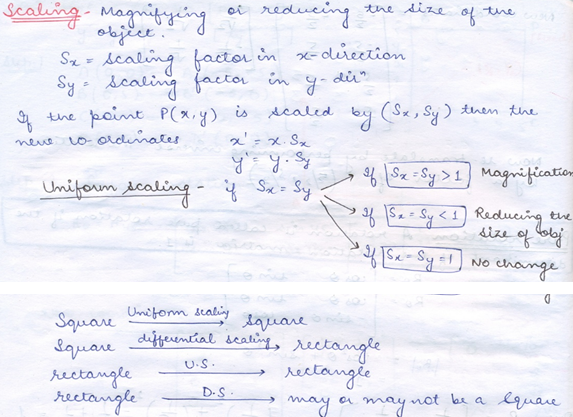 Scaling - Magnifying or reducing the size of the
object.
Sx = scaling factor in x-direction
Sy = scaling factor in y-dirⁿ
If the point P(x,y) is scaled by (Sx, Sy) then the
new co-ordinates x' = x.Sx
y' = y.Sy
Uniform scaling - if Sx = Sy
If Sx = Sy > 1 Magnification
If Sx = Sy < 1 Reducing the
size of obj
If Sx = Sy = 1 No change
Square Uniform scaling → square
Square differential scaling → rectangle
rectangle U.S. → rectangle
rectangle D.S. → may or may not be a square